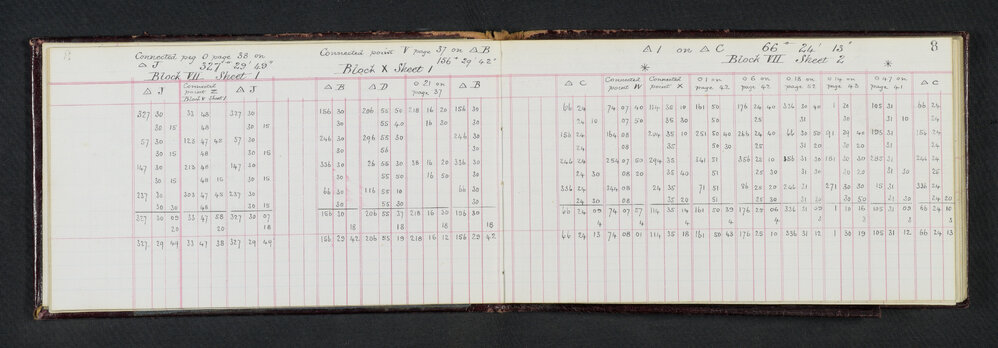 8
Connected peg O page 38 on
△ J 327° 29' 49"
Block VII Sheet 1
Connected point V page 37 on △ B
156° 29' 42"
Block X Sheet 1
△ 1 on △ C 66° 24' 13"
Block VII Sheet 2
△ J Connected point Z Block V Sheet 1 △ J
327 30 33 48 327 30
30 15 48 30 15
57 30 123 47 45 57 30
30 15 48 30 15
147 30 213 48 147 30
30 15 48 15 30 15
237 30 303 47 45 237 30
30 30 48 30 15
327 30 09 33 47 58 327 30 07
20 20 18
327 29 49 33 47 38 327 29 49
△ B △ D O 21 on page 37 △ B
156 30 206 55 50 218 16 20 156 30
30 55 40 16 30 30
246 30 296 55 30 246 30
30 55 30
336 30 26 55 30 38 16 20 336 30
30 55 50 16 50 30
66 30 116 55 10 66 30
30 55 30 30
156 30 206 55 37 218 16 30 156 30
18 18 18 18
156 29 42 206 55 19 218 16 12 156 29 42
△ C Connected point W Connected point X O 1 on page 42 O 6 on page 42 O 18 on page 52 O 14 on page 43 O 47 on page 41 △ C
66 24 74 07 40 114 35 10 161 50 176 24 40 336 30 40 1 30 105 31 66 24
24 10 07 50 35 30 50 25 31 30 31 10 24
156 24 164 08 204 35 10 251 50 40 266 24 40 66 30 50 91 29 40 195 31 156 24
24 08 35 50 30 25 31 20 30 20 31 24
246 24 254 07 50 294 35 341 51 356 25 10 156 31 30 181 30 30 285 31 246 24
24 30 08 20 35 40 51 25 30 31 30 30 31 25
336 24 344 08 24 35 71 51 86 25 20 246 31 271 30 30 15 31 336 24
24 30 08 35 20 51 25 30 31 30 30 50 31 30 24 20
66 24 09 74 07 57 114 35 14 161 50 39 176 25 06 336 31 09 1 30 16 105 31 09 66 24 10
4 4 4 4 4 3 3 3 3
66 24 13 74 08 01 114 35 18 161 50 43 176 25 10 336 31 12 1 30 19 105 31 12 66 24 13